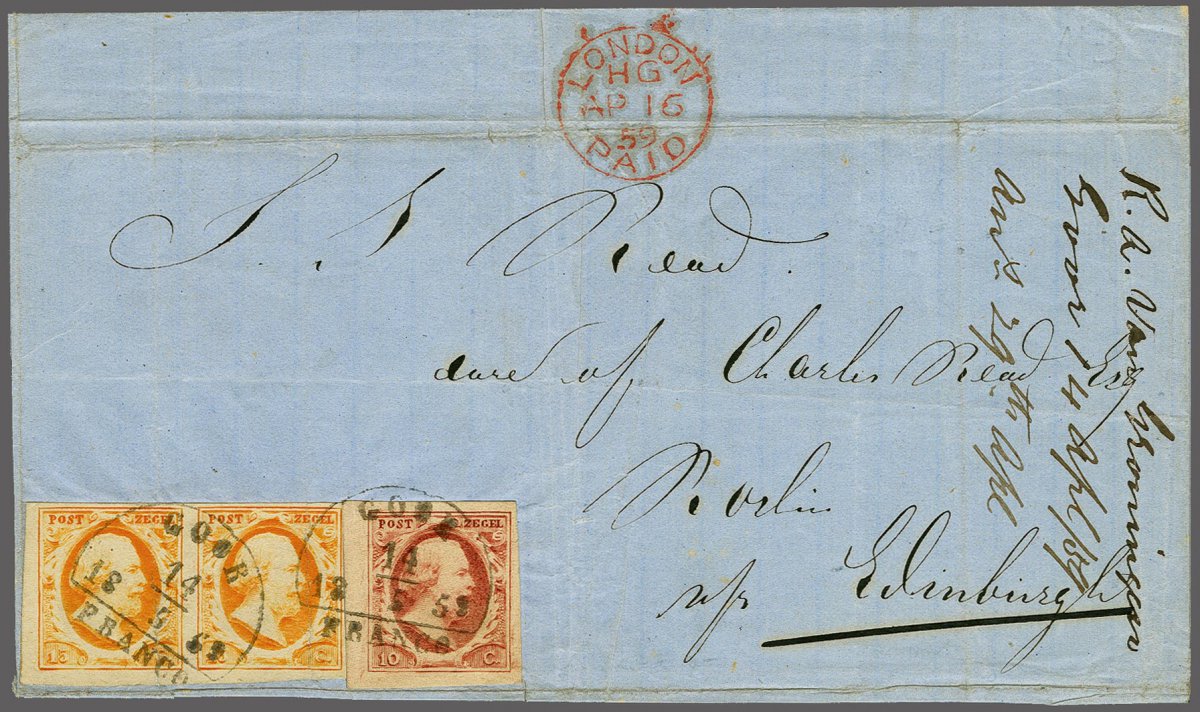 LONDON
HG
AP 16
59
PAID
J. S Read.
care of Charles Read Esq
Roslin
nr Edinburgh
R. A. Van Groningen
Goor 14 Apl/59
ans 29th Apl
POST ZEGEL
POST ZEGEL
POST ZEGEL
GOOR
14
18 59
FRANCO
GOOR
14
18 59
FRANCO
15
C.
10 C.